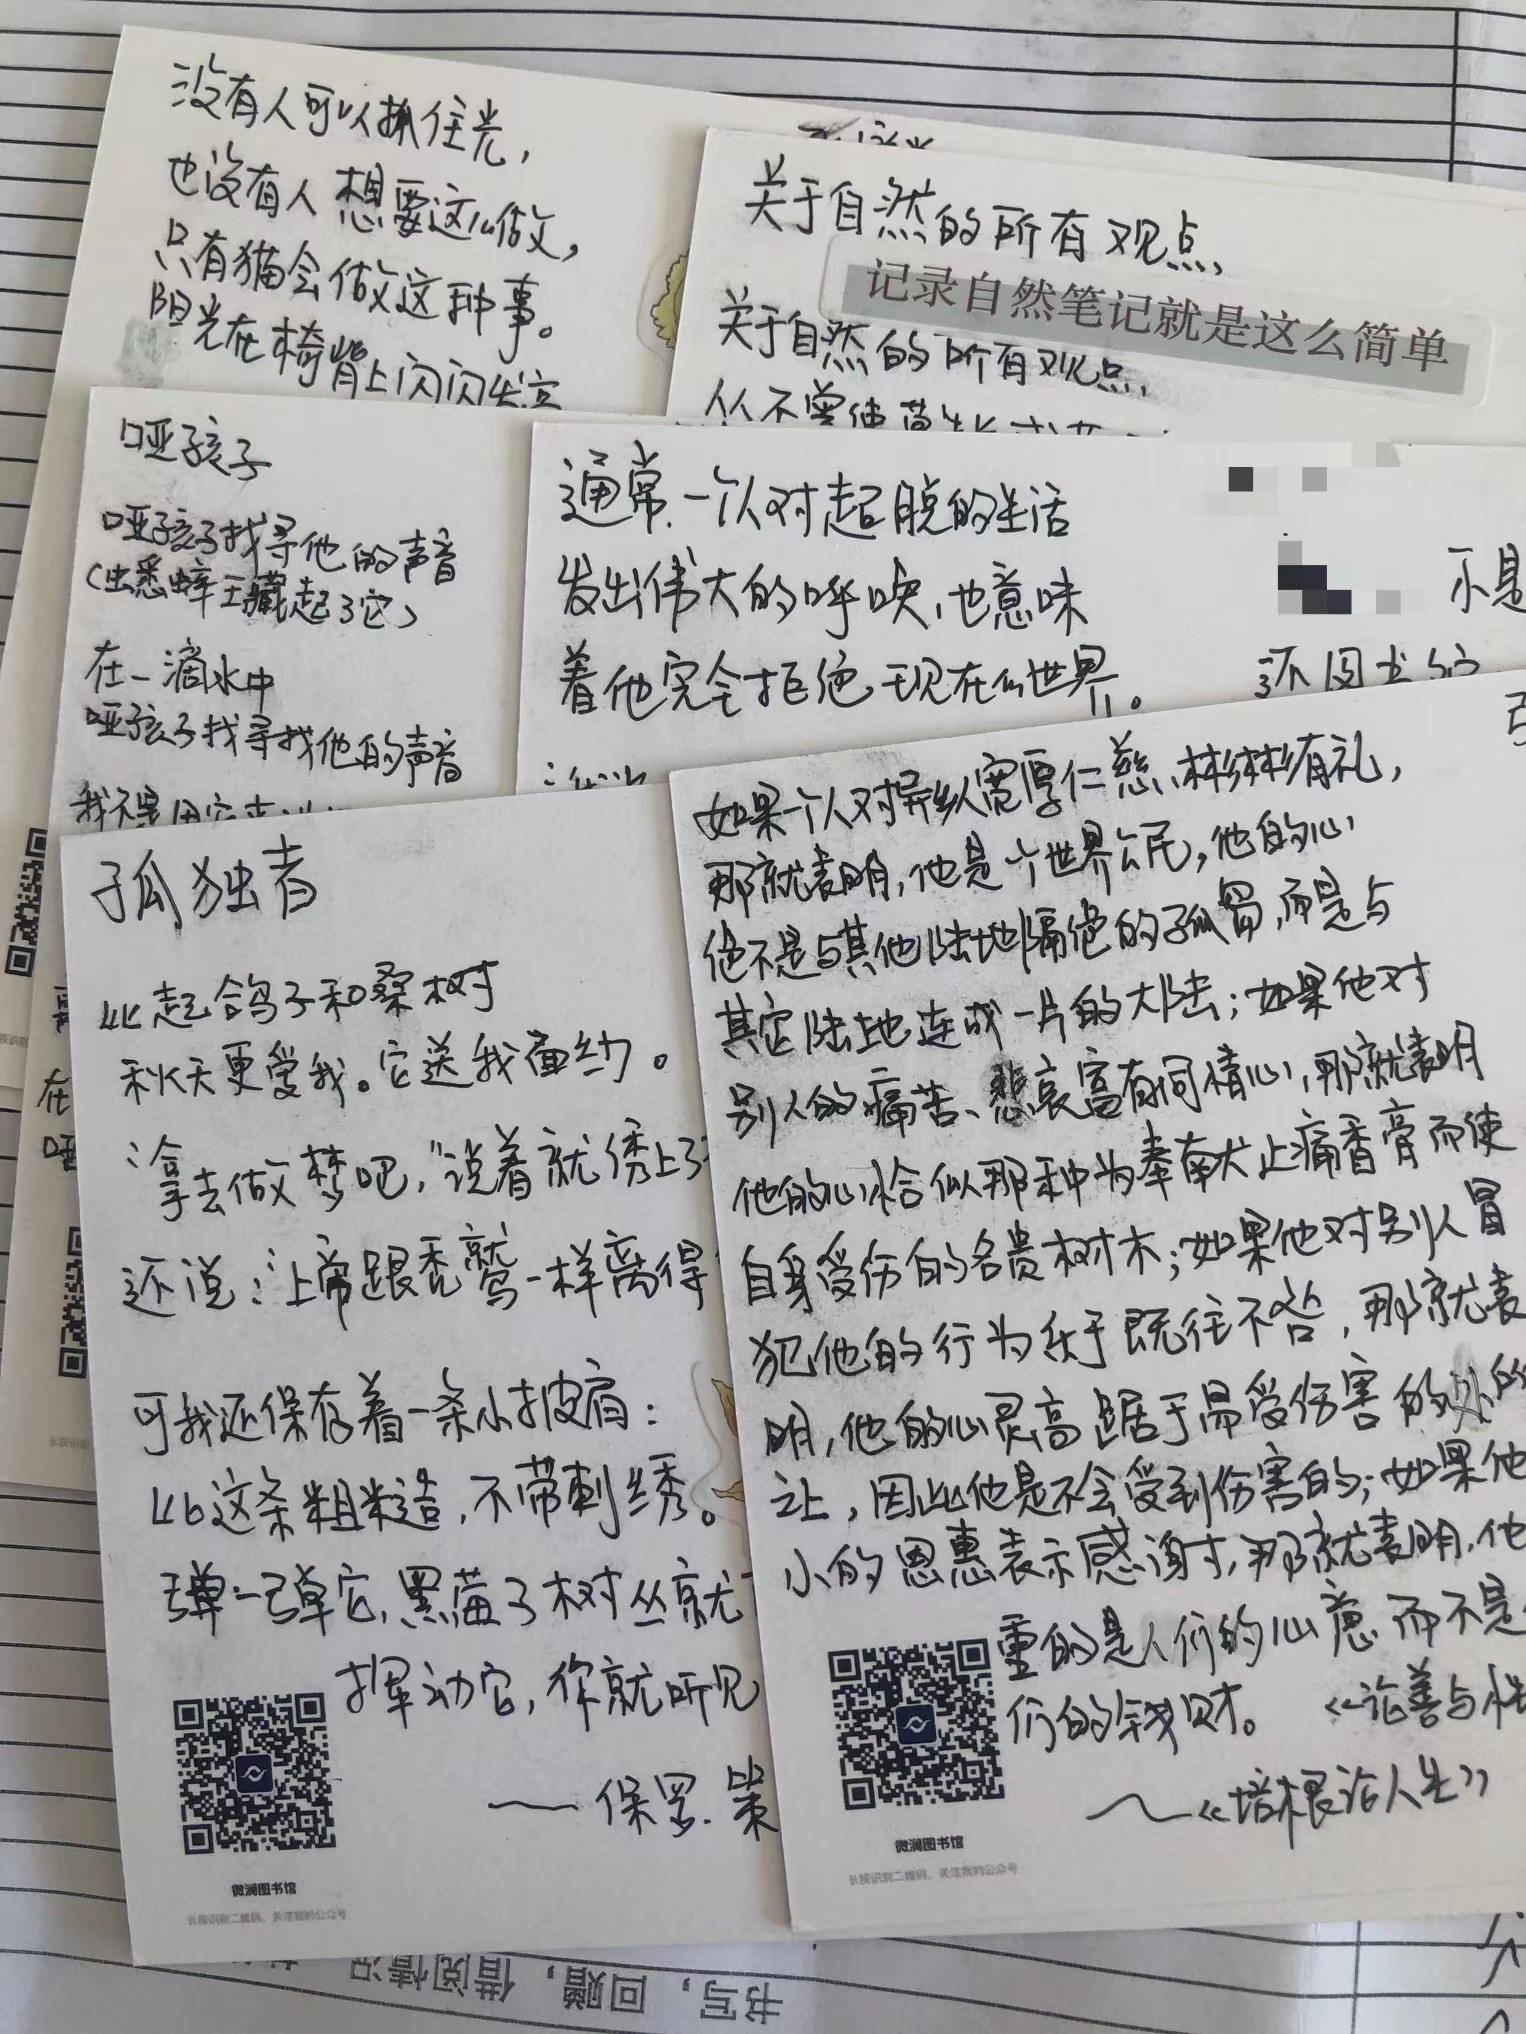 没有人可以抓住光，
也没有人想要这么做，
只有猫会做这种事。
阳光在椅背上闪闪发亮
关于自然的所有观点，
记录自然笔记就是这么简单
关于自然的所有观点，
从不曾使草生长或
哑孩子
哑孩子找寻他的声音
（蟋蟀王藏起了它）
在一滴水中
哑孩子找寻找他的声音
我不是用它来
在
哑
通常，一个人对超脱的生活
发出伟大的呼唤，也意味
着他完全拒绝现在的世界。
不是
还图书馆
孤独者
比起鸽子和桑树
秋天更爱我。它送我面纱。
“拿去做梦吧，”说着就绣上了
还说：上帝跟秃鹫一样离得
可我还保存着一条小披肩：
比这条粗糙，不带刺绣。
弹一弹它，黑莓了树丛就
挥动它，你就听见
——保罗.策
微澜图书馆
长按识别二维码，关注我的公众号
如果一个人对异乡人宽厚仁慈、彬彬有礼，
那就表明，他是个世界公民，他的心
绝不是与其他陆地隔绝的孤岛，而是与
其它陆地连成一片的大陆；如果他对
别人的痛苦、悲哀富有同情心，那就表明
他的心恰似那种为奉献止痛香膏而使
自身受伤的名贵树木；如果他对别人冒
犯他的行为乐于既往不咎，那就表
明，他的心灵高踞于易受伤害的
之上，因此他是不会受到伤害的；如果他
小的恩惠表示感谢，那就表明，他
重的是人们的心意而不是
们的钱财。《论善与性
——《培根论人生》
微澜图书馆
长按识别二维码，关注我的公众号
书写，回赠，借阅情况